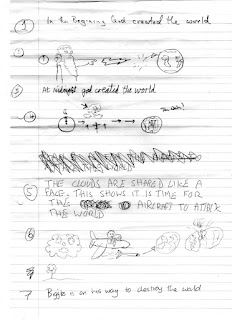 1 In the Beginning God created the world
3 At midnight god created the world
5 THE CLOUDS ARE SHAPED LIKE A
FACE. THIS SHOWS IT IS TIME FOR
THE AIRCRAFT TO ATTACK
THE WORLD
6
7 Biggles is on his way to destroy the world